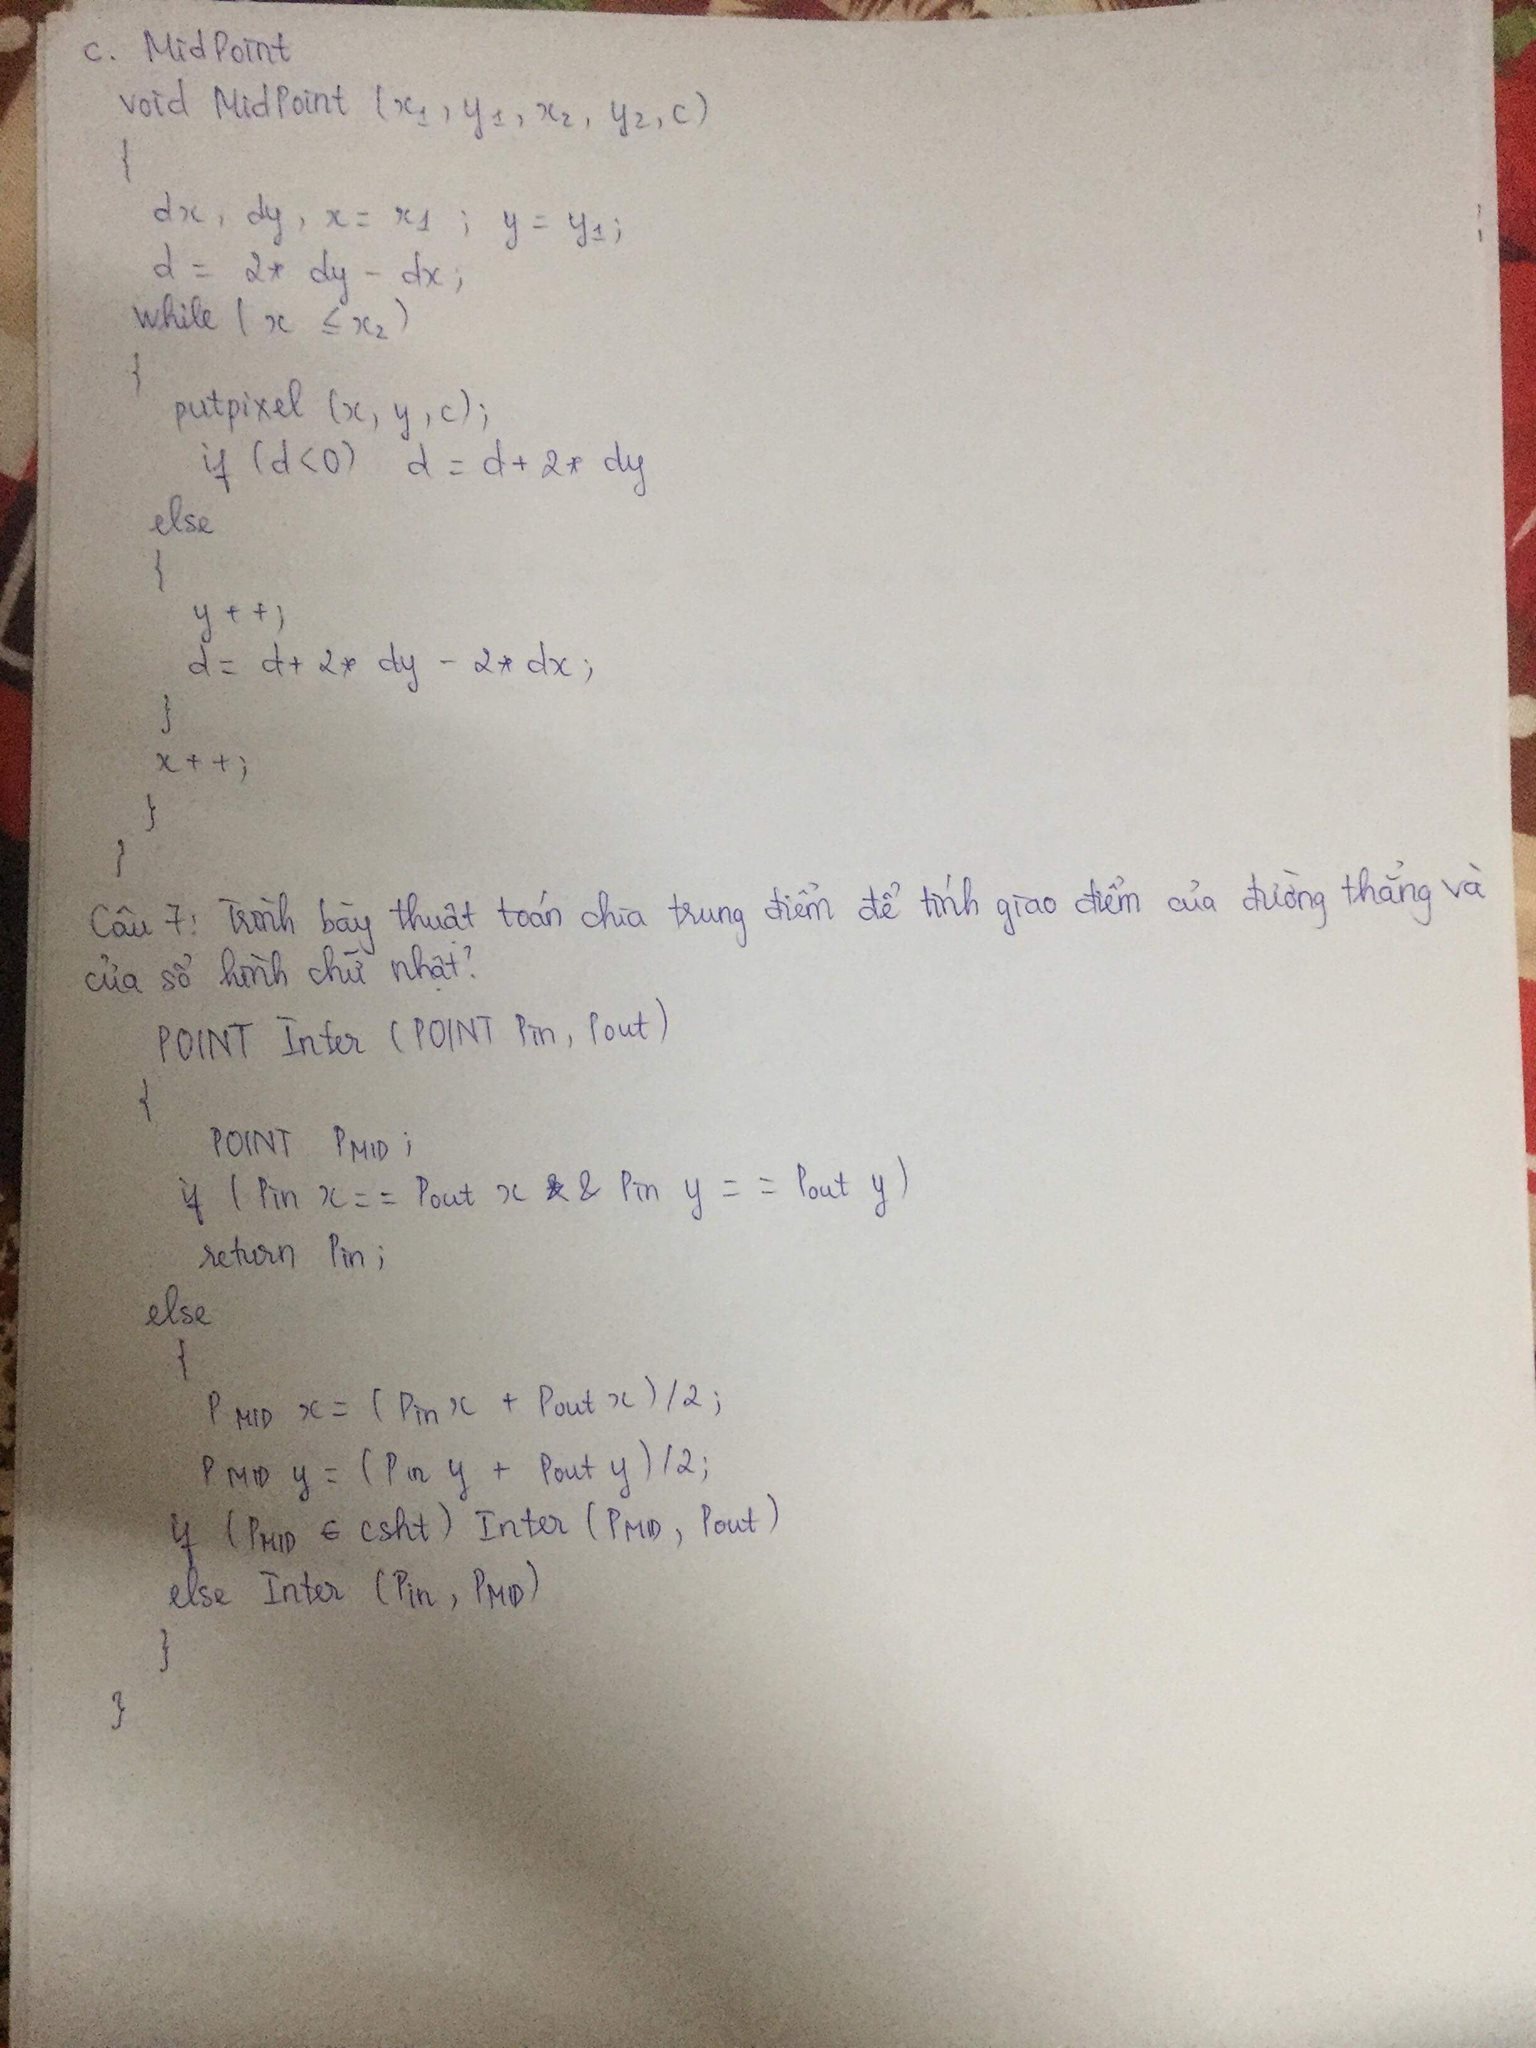 c. MidPoint
void MidPoint (x1, y1, x2, y2, c)
{
dx, dy, x = x1 ; y = y1;
d = 2* dy - dx;
while ( x ≤ x2)
{
putpixel (x, y, c);
if (d<0) d = d+ 2* dy
else
{
y + +;
d = d+ 2* dy - 2* dx;
}
x + +;
}
}
Câu 7: Trình bày thuật toán chia trung điểm để tính giao điểm của đường thẳng và
cửa sổ hình chữ nhật?
POINT Inter (POINT Pin, Pout)
{
POINT PMID;
if (Pin x == Pout x && Pin y == Pout y)
return Pin;
else
{
PMID x = (Pin x + Pout x)/2;
PMID y = (Pin y + Pout y)/2;
if (PMID ∈ csht) Inter (PMID, Pout)
else Inter (Pin, PMID)
}
}